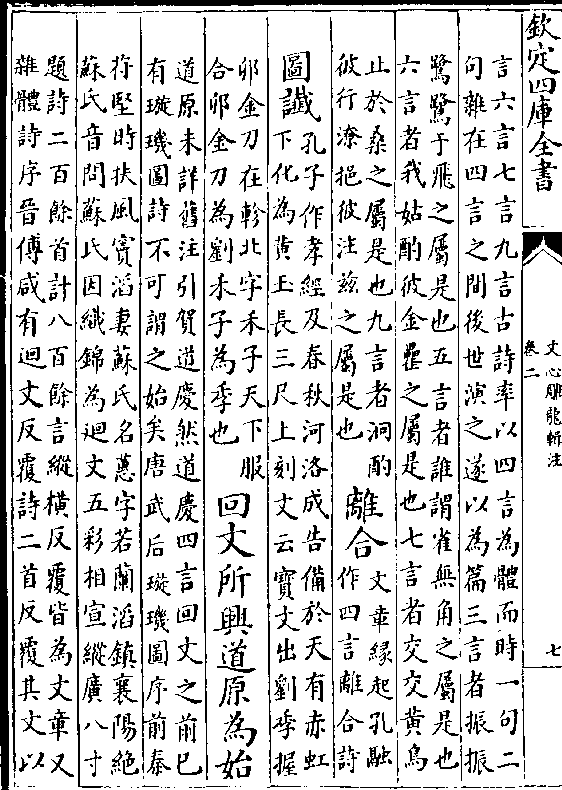 欽定四庫全書
文心雕龍輯注
卷二
七
言六言七言九言古詩率以四言為體而時一句二
句雜在四言之間後世演之遂以為篇三言者振振
鷺鷺于飛之屬是也五言者誰謂雀無角之屬是也
六言者我姑酌彼金罍之屬是也七言者交交黄鳥
止於桑之屬是也九言者泂酌
彼行潦挹彼注兹之屬是也
離合
文章緣起孔融
作四言離合詩
圖讖
孔子作孝經及春秋河洛成告備於天有赤虹
下化為黄玉長三尺上刻文云寶文出劉季握
卯金刀在軫北字禾子天下服
合卯金刀為劉禾子為季也
回文所興道原為始
道原未詳舊注引賀道慶然道慶四言回文之前已
有璇璣圖詩不可謂之始矣唐武后璇璣圖序前秦
苻堅時扶風竇滔妻蘇氏名蕙字若蘭滔鎮襄陽絶
蘇氏音問蘇氏因織錦為迴文五彩相宣縱廣八寸
題詩二百餘首計八百餘言縱橫反覆皆為文章又
雜體詩序晉傅咸有迴文反覆詩二首反覆其文以